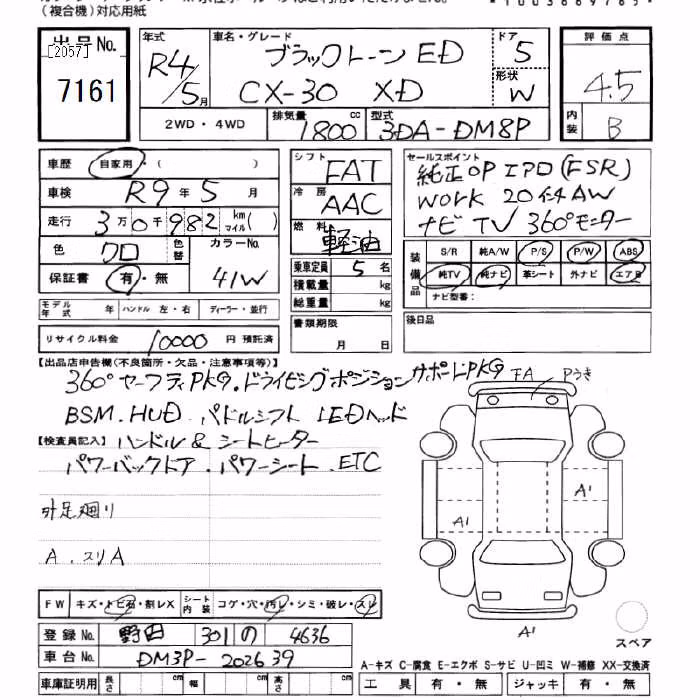 (複合機)対応用紙
出品No.
[2057]
7161
年式
R4/5月
車名・グレード
ブラックトーンED
CX-30 XD
ドア
5
形状
W
評価点
4.5
内装
B
2WD・4WD
排気量
1800cc
型式
3DA-DM8P
車歴
自家用・( )
車検
R9年5月
走行
3万0千982km マイル( )
色
クロ
色替
カラーNo.
41W
保証書
有・無
シフト
FAT
冷房
AAC
燃料
軽油
乗車定員
5名
積載量
kg
総重量
kg
セールスポイント
純正OP エアロ(FSR)
WORK 20インチAW
ナビ TV 360°モニター
装備品
S/R 純A/W P/S P/W ABS
純TV 純ナビ 革シート 外ナビ エアB
ナビ型番:
モデル年式 年 ハンドル 左・右 ディーラー・並行
リサイクル料金 10000円 預託済
書類期限
月 日
後日品
【出品店申告欄(不良箇所・欠品・注意事項等)】
360°セーフティPKG.ドライビングポジションサポートPKG
BSM.HUD.パドルシフト LEDヘッド
【検査員記入】ハンドル&シートヒーター
パワーバックドア.パワーシート.ETC
外足廻り
A.スリA
FA
Pうき
A1
A1
A1
スペア
FW キズ・トビ石・割レX
シート内装 コゲ・穴・汚レ・シミ・破レ・スレ
登録No. 野田 301 の 4636
車台No. DM3P-202639
車庫証明用 長さ cm 幅 cm 高さ cm
A-キズ C-腐食 E-エクボ S-サビ U-凹ミ W-補修 XX-交換済
工具 有・無 ジャッキ 有・無